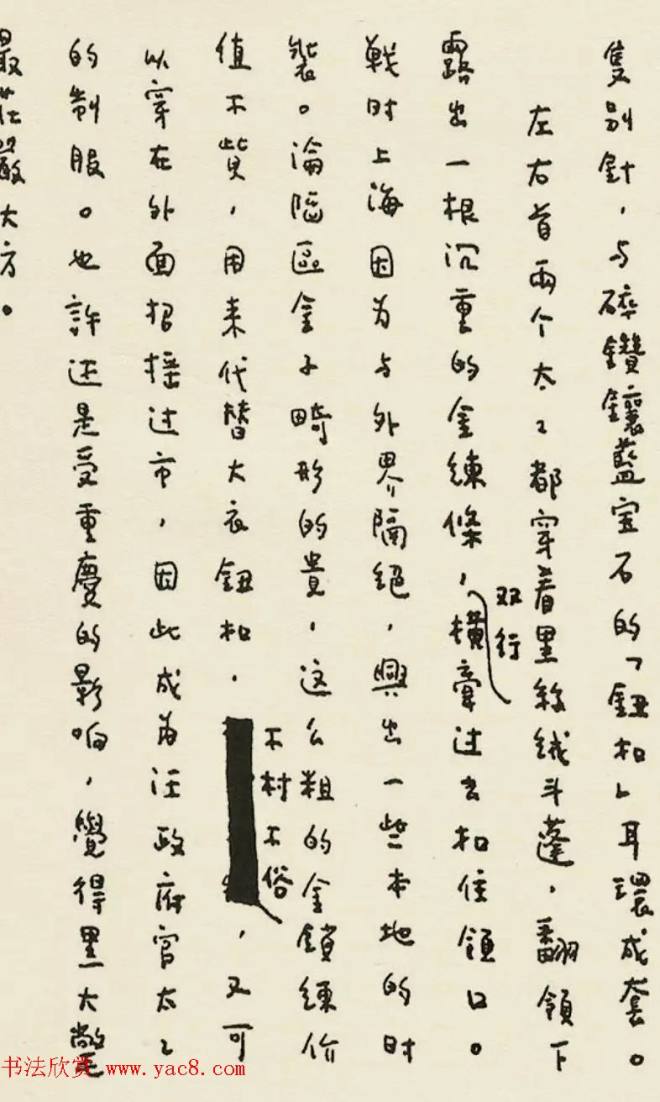 隻别針，与碎鑽鑲藍宝石的「鈕扣」耳環成套。
左右首兩个太〻都穿着黑絲絨斗蓬，翻領下
双行
露出一根沉重的金練條，橫牽过去扣住領口。
戰时上海因为与外界隔絕，興出一些本地的时
裝。淪陷區金子畸形的貴，这么粗的金鎖練价
不村不俗
值不貲，用来代替大衣鈕扣，，又可
以穿在外面招摇过市，因此成为汪政府官太〻
的制服。也許还是受重慶的影响，覺得黑大氅
最莊嚴大方。
书法欣赏 www.yac8.com